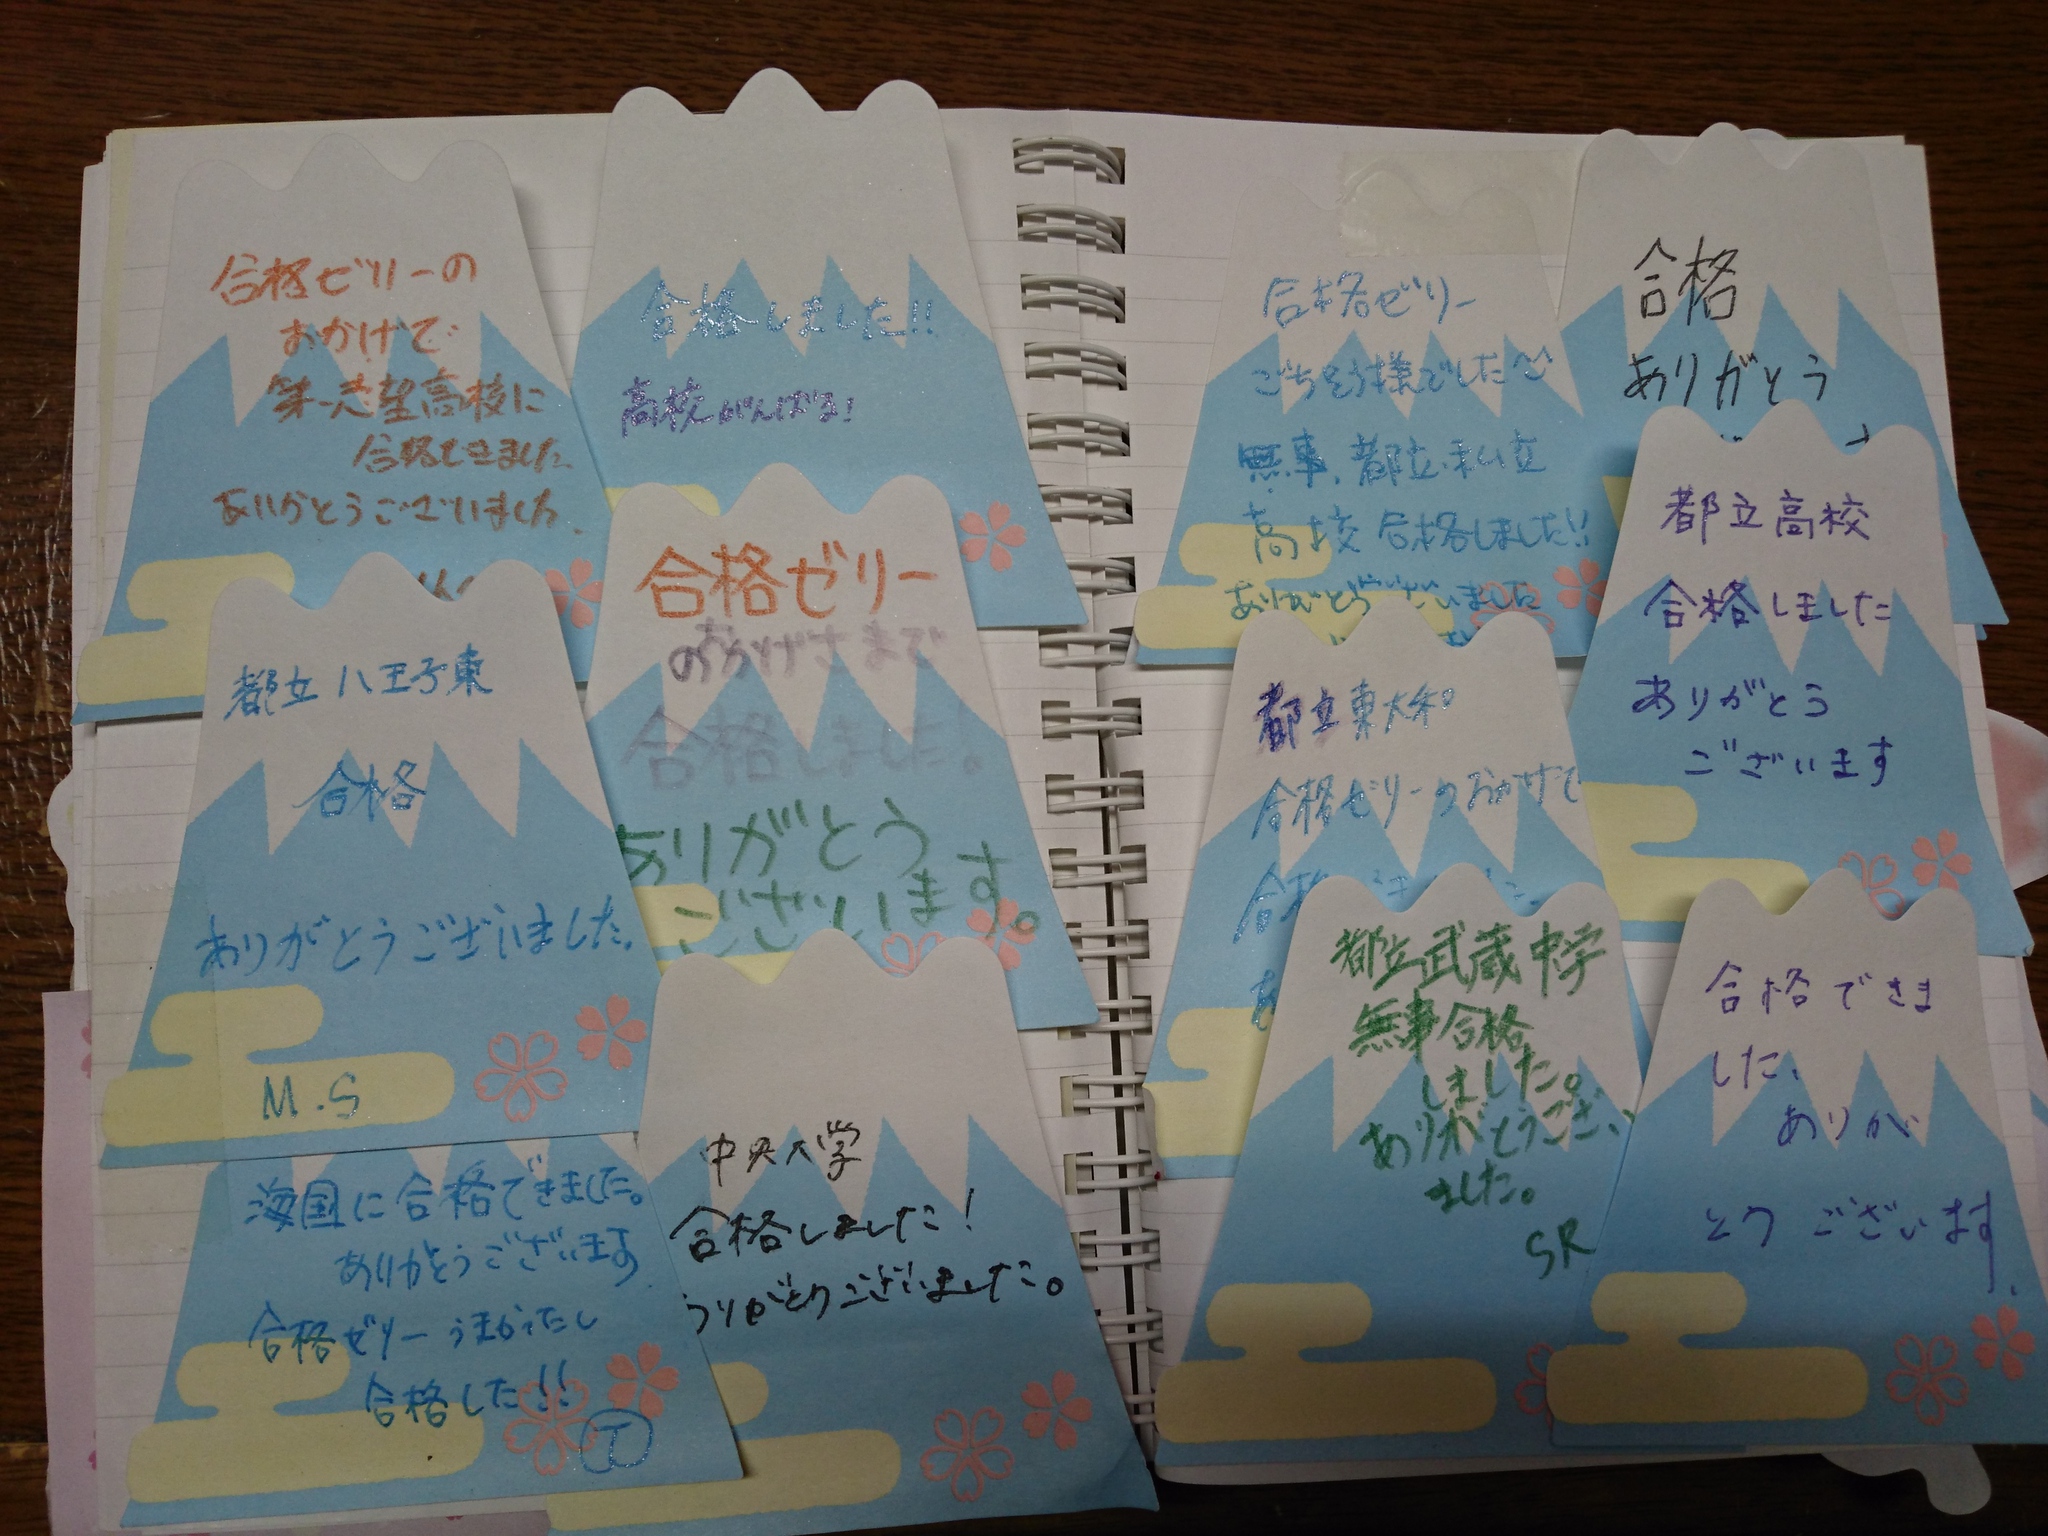 合格ゼリーの
おかげで
第一志望高校に
合格できました
ありがとうございました。
合格しました!!
高校がんばる!
都立八王子東
合格
ありがとうございました。
M.S
合格ゼリー
のおかげさまで
合格しました!
ありがとう
ございます。
海国に合格できました。
ありがとうございます
合格ゼリーうまかったし
合格した!!
中央大学
合格しました!
ありがとうございました。
合格ゼリー
ごちそう様でした
無事、都立・私立
高校合格しました!!
ありがとうございました
合格
ありがとう
都立高校
合格しました
ありがとう
ございます
都立東大和
合格ゼリーのおかげで
合格
都立武蔵中学
無事合格
しました。
ありがとうござい
ました。
SR
合格できま
した、
ありが
とう ございます.